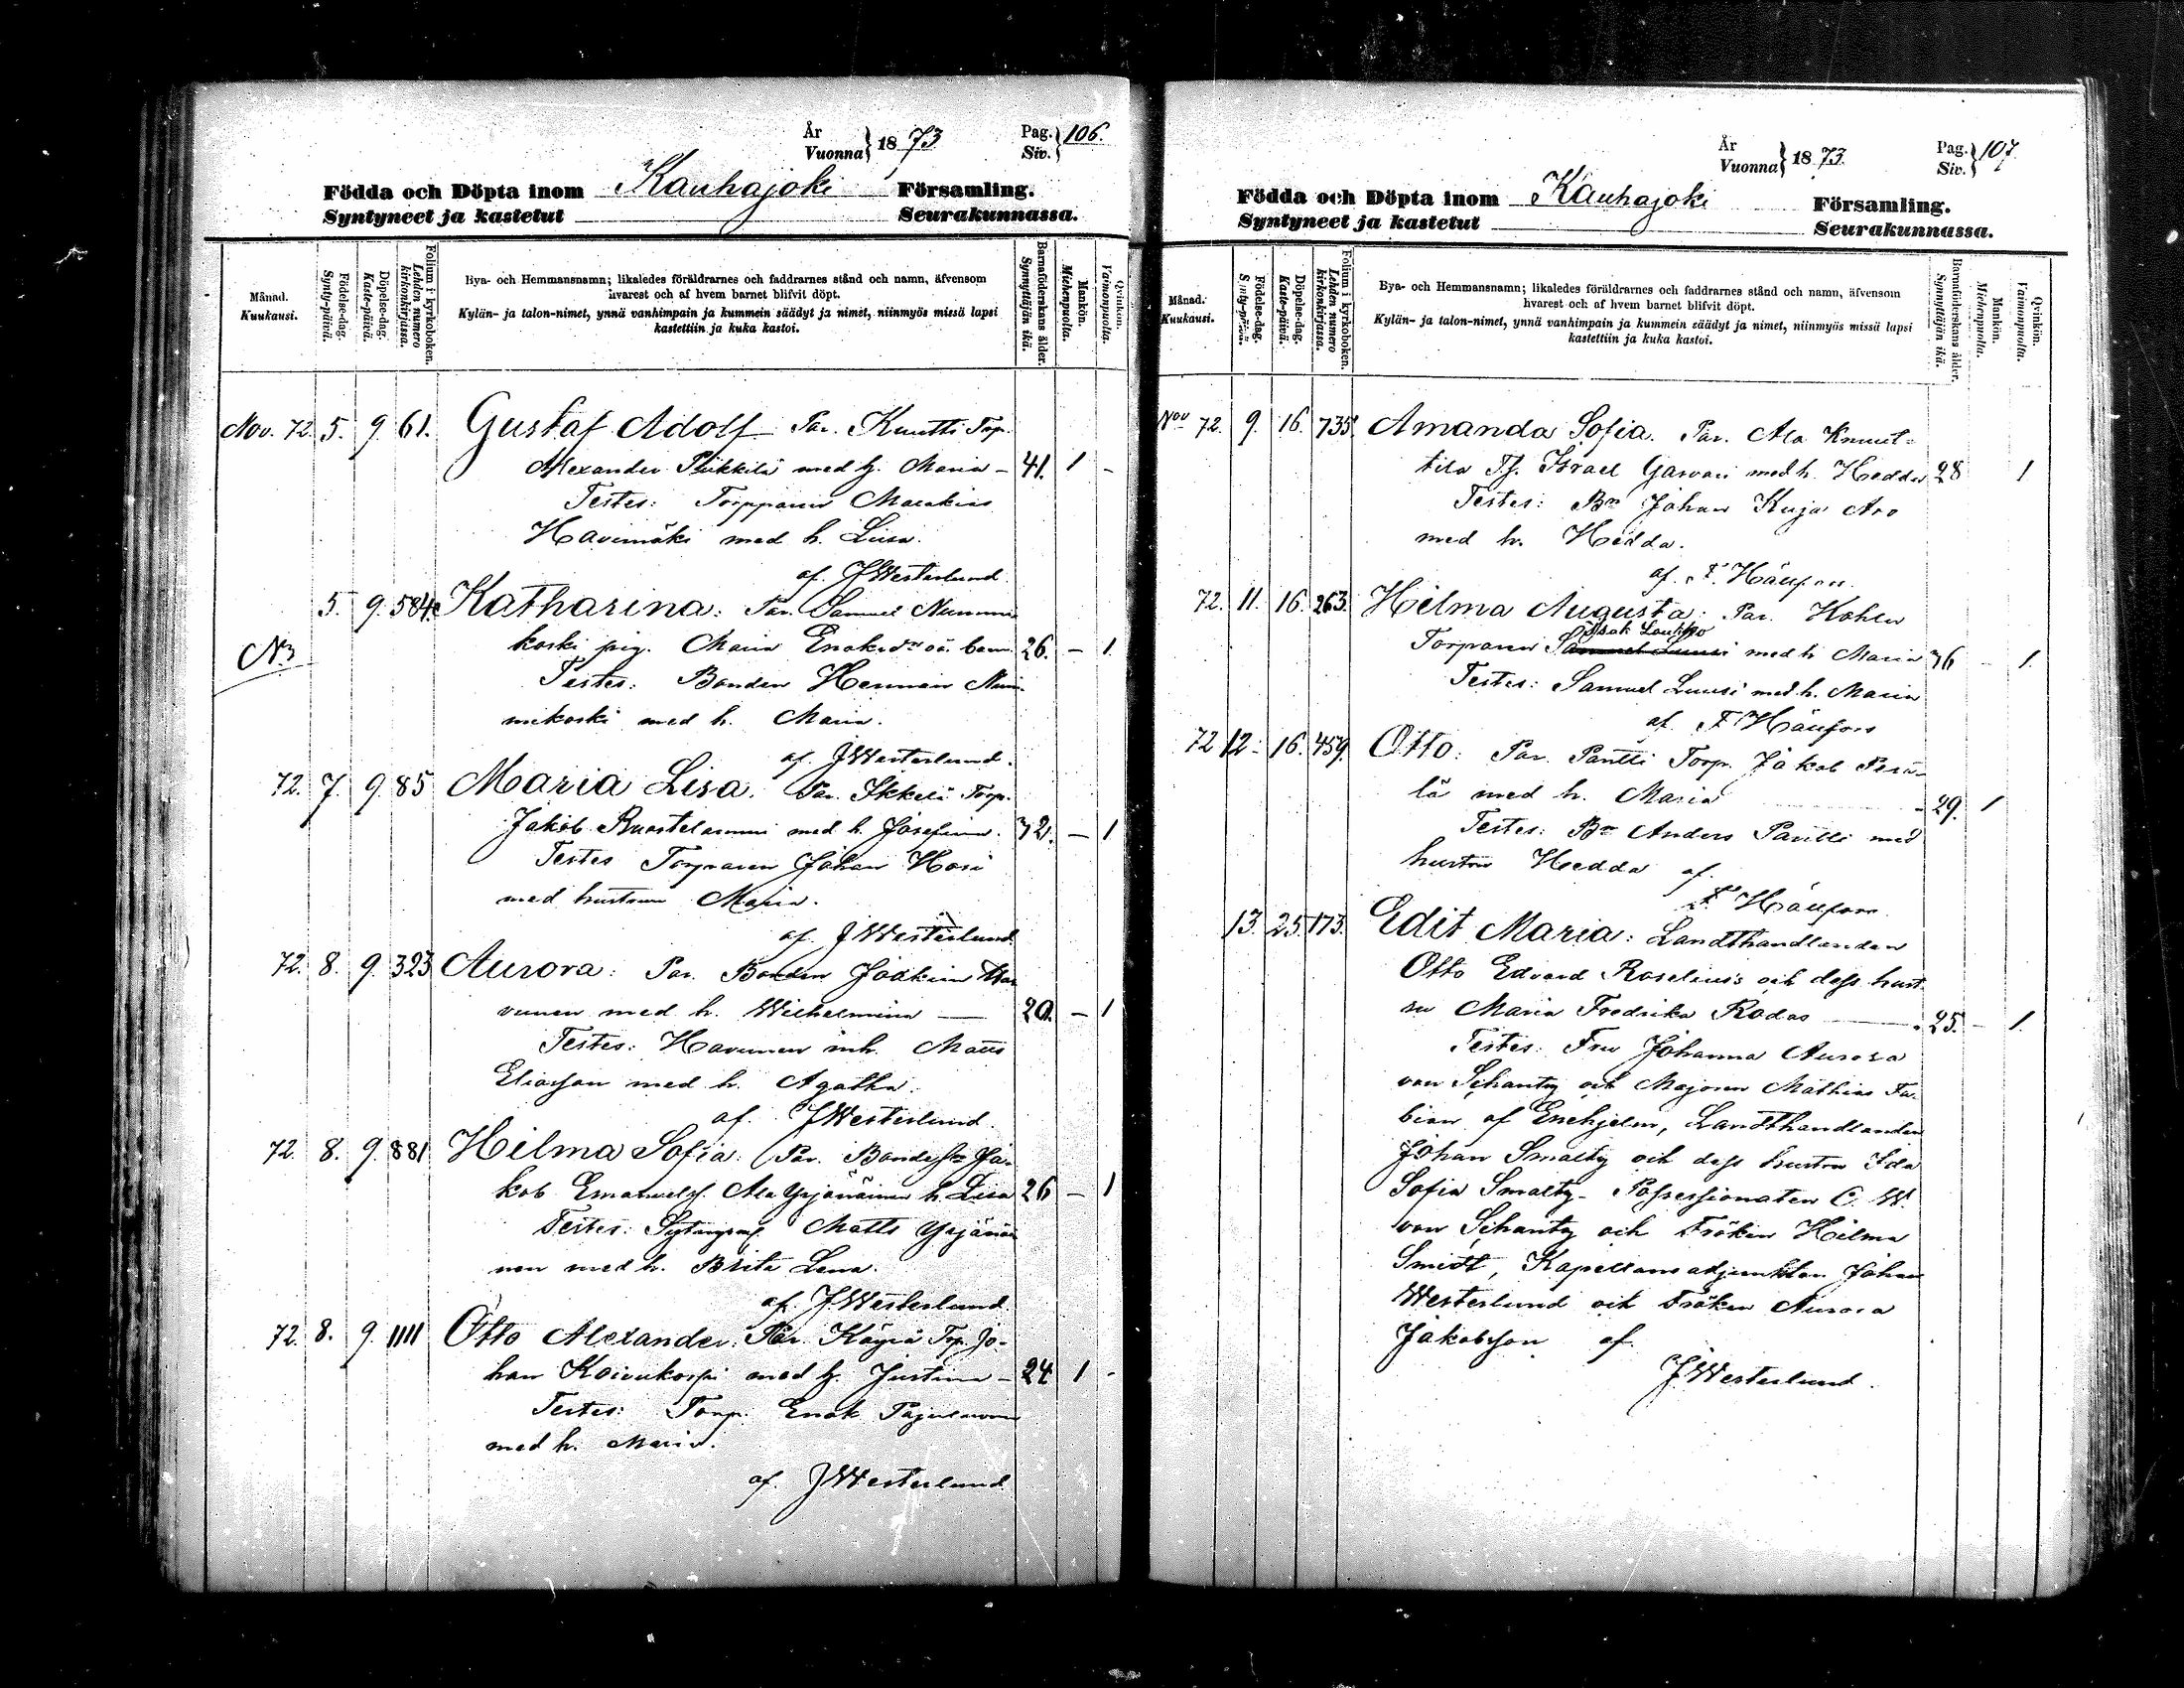 År
Vuonna } 1873
Pag.
Siv. } 106.
Födda och Döpta inom Kauhajoki Församling.
Syntyneet ja kastetut Seurakunnassa.
Månad.
Kuukausi.
Födelse-dag.
Synty-päivä.
Döpelse-dag.
Kaste-päivä.
Folium i kyrkoboken.
Lehden numero kirkonkirjassa.
Bya- och Hemmansnamn; likaledes föräldrarnes och faddrarnes stånd och namn, äfvensom
hvarest och af hvem barnet blifvit döpt.
Kylän- ja talon-nimet, ynnä vanhimpain ja kummein säädyt ja nimet, niinmyös missä lapsi
kastettiin ja kuka kastoi.
Barnaföderskans ålder.
Synnyttäjän ikä.
Mankön.
Miehenpuolta.
Qvinkön.
Vaimonpuolta.
Nov. 72. 5. 9. 61. Gustaf Adolf Par. Knutti Torp.
Alexander Pukkila med h. Maria - 41. 1 -
Testes: Torpparen
Havimäki med h. Lisa.
af. JWesterlund.
5. 9. 584. Katharina: Par. Samuel Nummi
koski pig. Maria Enoksdr oä. barn. 26. - 1.
Testes: Bonden Herman Num-
mikoski med h. Maria.
af. JWesterlund.
72. 7. 9. 85 Maria Lisa. Par. Ikkelä Torp.
Jakob med h. Josefina. 32. - 1
Testes Torparen Johan Hosi
med hustrun Maria.
af. JWesterlund.
72. 8. 9. 323 Aurora: Par. Bonden Joakim Ha
vunen med h. Wilhelmina — 20. - 1
Testes: Havunen inh. Matts
Eliasson med h. Agatha.
af. JWesterlund.
72. 8. 9. 881 Hilma Sofia: Par. Bonde Ja-
kob Emanuelsf. Ala Yrjänäinen h. Lisa 26 - 1
Testes: Matts Yrjänäi
nen med h. Brita Lena.
af. JWesterlund.
72. 8. 9. 1111 Otto Alexander. Par. Käyrä Torp. Jo-
han Koivukoski med h. Justina - 24 1 -
Testes: Torp. Enok
med h. Maria.
af. JWesterlund
År
Vuonna } 1873.
Pag.
Siv. } 107
Födda och Döpta inom Kauhajoki Församling.
Syntyneet ja kastetut Seurakunnassa.
Månad.
Kuukausi.
Födelse-dag.
Synty-päivä.
Döpelse-dag.
Kaste-päivä.
Folium i kyrkoboken.
Lehden numero kirkonkirjassa.
Bya- och Hemmansnamn; likaledes föräldrarnes och faddrarnes stånd och namn, äfvensom
hvarest och af hvem barnet blifvit döpt.
Kylän- ja talon-nimet, ynnä vanhimpain ja kummein säädyt ja nimet, niinmyös missä lapsi
kastettiin ja kuka kastoi.
Barnaföderskans ålder.
Synnyttäjän ikä.
Mankön.
Miehenpuolta.
Qvinkön.
Vaimonpuolta.
Nov 72. 9. 16. 735. Amanda Sofia. Par. Ala Knuut-
tila Israel med h. Hedda 28 1
Testes: Bn Johan Kuja Aro
med h. Hedda.
af. F. Häufors.
72. 11. 16. 263. Hilma Augusta: Par.
Isak Loukko
Torparen Samuel Luusi med h. Maria 36 - 1.
Testes: Samuel Luusi med h. Maria
af. F Häufors
72 12. 16. 459. Otto: Par. Pantti Torp. Jakob Perä-
lä med h. Maria - 29. 1
Testes: Bn Anders Pantti med
hustru Hedda af.
F Häufors
13. 25. 173. Edit Maria: Landthandlanden
Otto Edvard Roselius och dess hust
ru Maria Fredrika Rodas — 25. - 1.
Testes: Fru Johanna Aurora
von Schantz och Majoren Mathias Fa-
bian af Enehjelm, Landthandlanden
Johan Smaltz och dess hustru Ida
Sofia Smaltz - Possessionaten C. W.
von Schantz och Fröken Hilma
Smidt, Kapellansadjunkten Johan
Westerlund och Fröken Aurora
Jakobsson af.
JWesterlund.